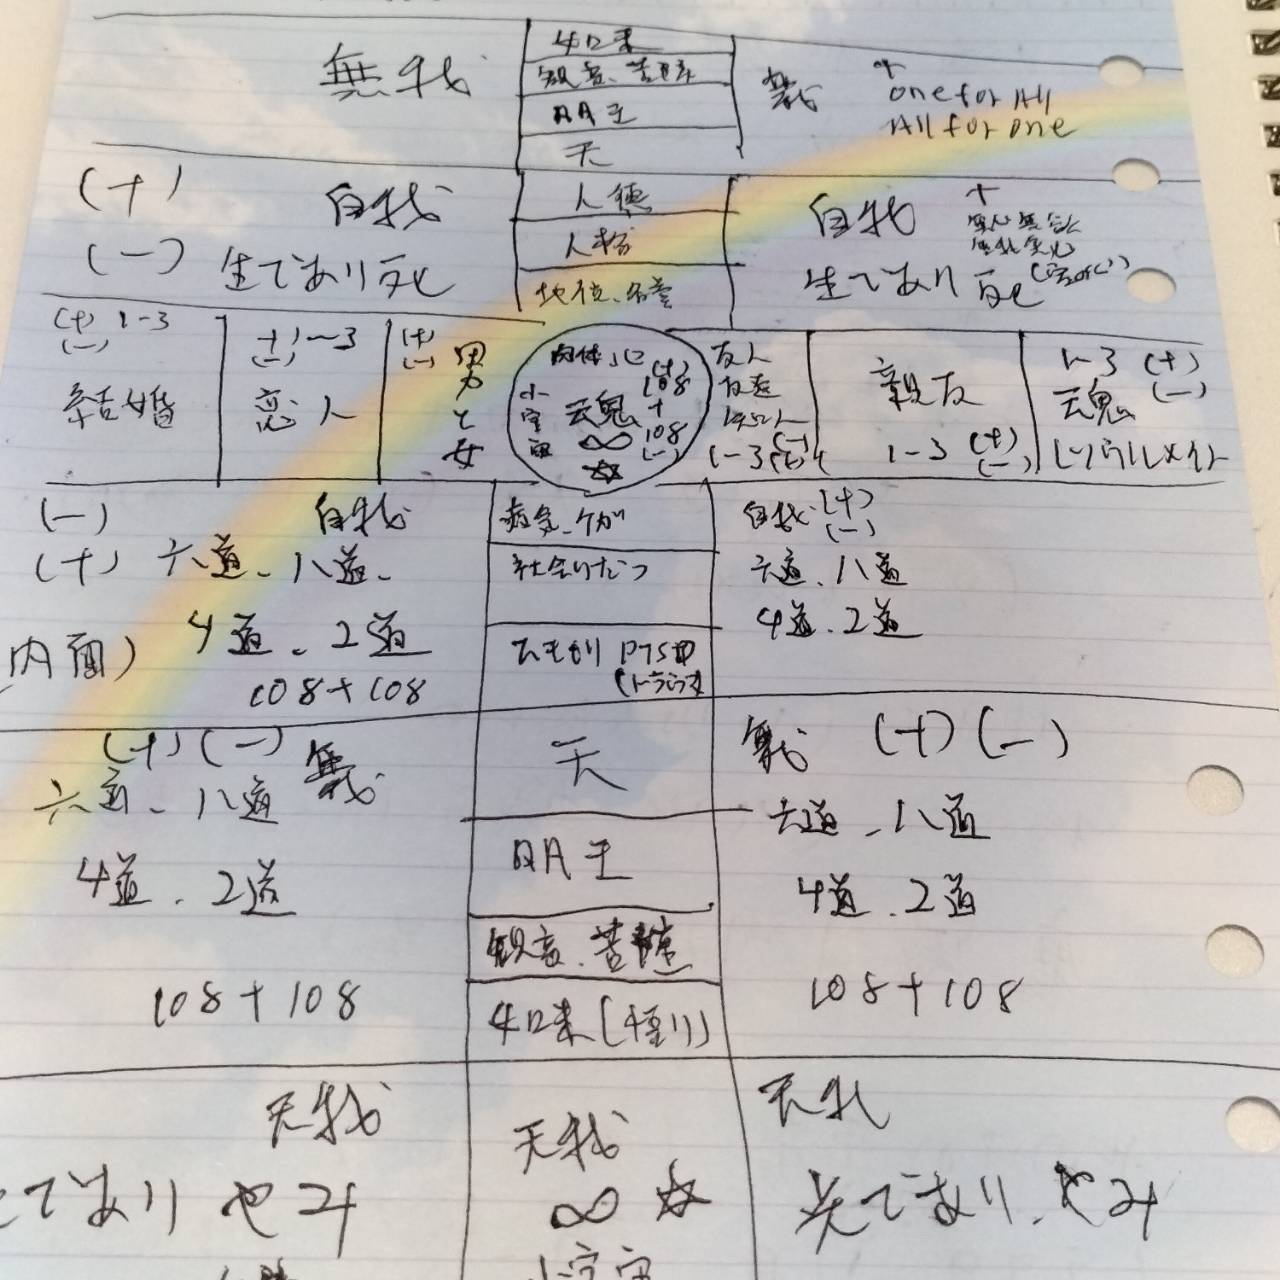 無我
如来
観音、菩薩
明王
天
無我
+
one for All
All for one
(+)
自我
(-) 生であり死
人徳
人格
地位、名誉
自我
+
生であり死
(+) 1-3
(-)
結婚
(+) 1-3
(-)
恋人
(+)
(-)
男
と
女
肉体、心
小宇宙
魂
∞
☆
(+)
108
+
108
(-)
友人
友達
1-3
親友
1-3 (+)
(-)
1-3 (+)
(-)
魂
(-)
(+)
自我
六道、八道、
4道、2道
(内面)
108+108
病気、ケガ
社会
PTSD
(トラウマ
自我 (+)
(-)
六道、八道
4道、2道
(+)(-) 無我
六道、八道
4道、2道
108+108
天
明王
観音、菩薩
如来
無我 (+)(-)
六道、八道
4道、2道
108+108
天我
であり やみ
天我
∞ ☆
小宇宙
天我
光であり、やみ